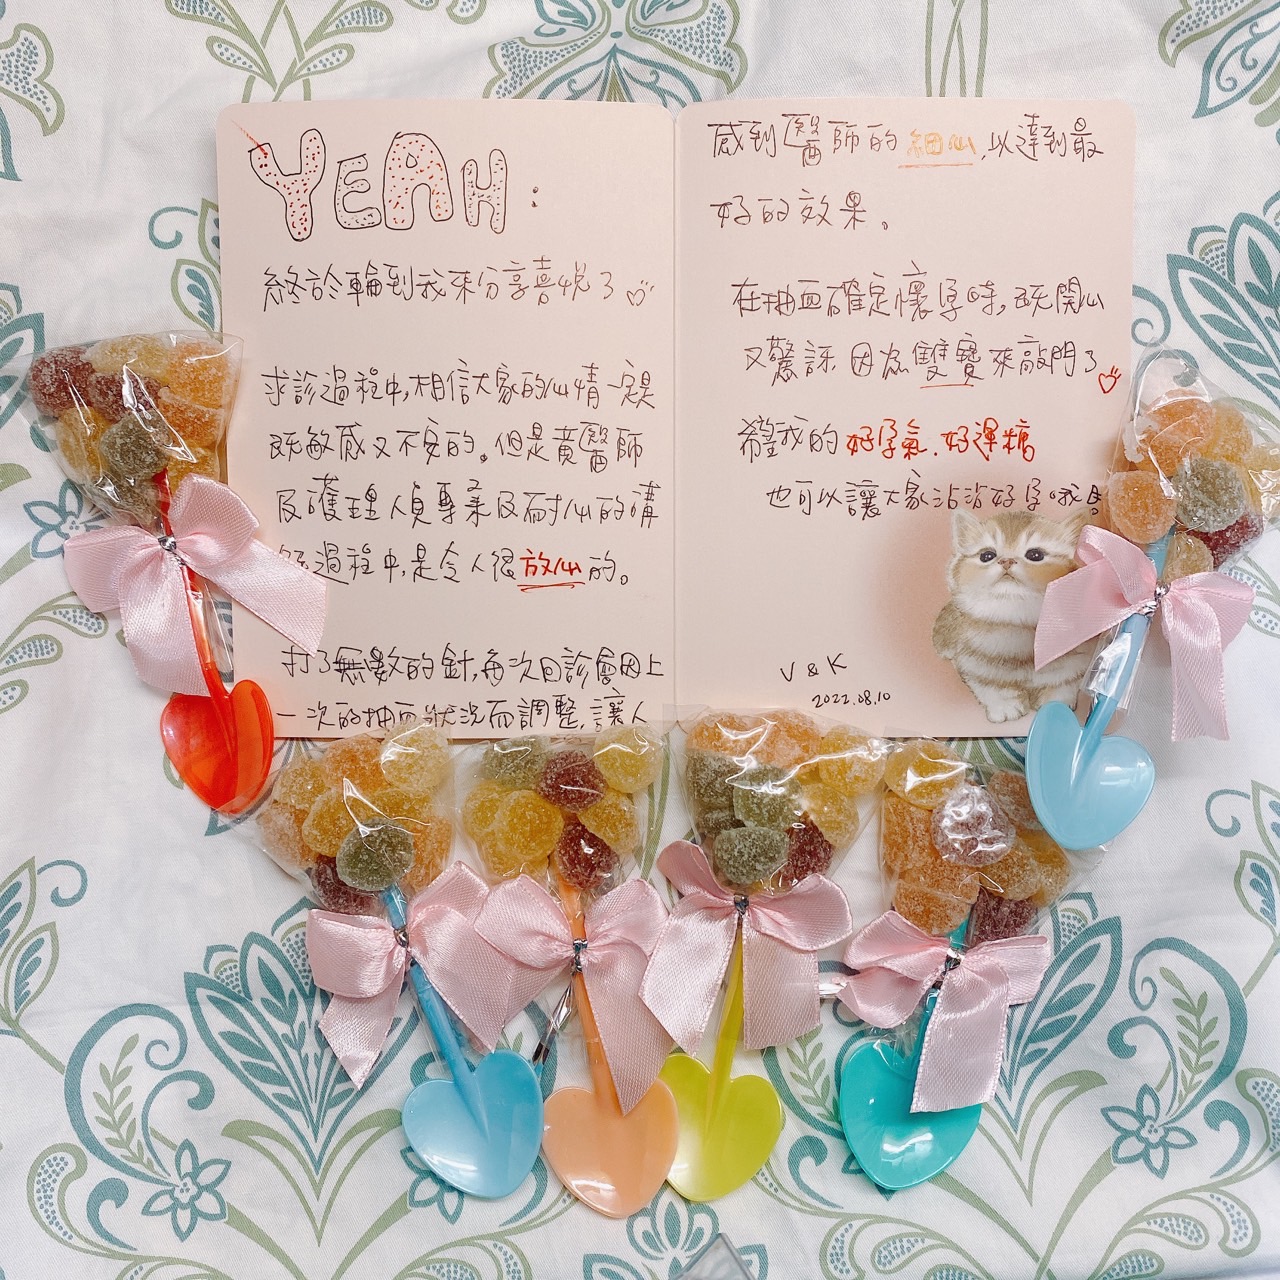 YEAH:
終於輪到我來分享喜悅了
求診過程中,相信大家的心情一定是
既敏感又不安的。但是黃醫師
及護理人員專業及耐心的講
過程中,是令人很放心的。
打了無數的針,每次回診會因上
一次的抽血狀況而調整,讓人
感到醫師的細心,以達到最
好的效果。
在抽血確定懷孕時,既開心
又驚訝.因為雙寶來敲門了
希望我的好孕氣.好運糖
也可以讓大家沾沾好孕哦!
V & K
2022.08.10